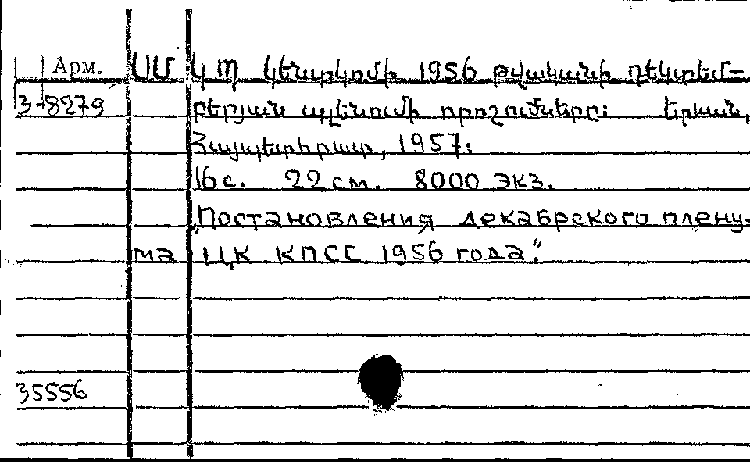 Арм. ՍՄ ԿՊ Կենտկոմի 1956 թվականի դեկտեմ-
3-8279 բերյան պլենումի որոշումները: Երևան,
Հայպետհրատ, 1957:
16 с. 22 см. 8000 экз.
"Постановления декабрского плену-
ма ЦК КПСС 1956 года".
35556